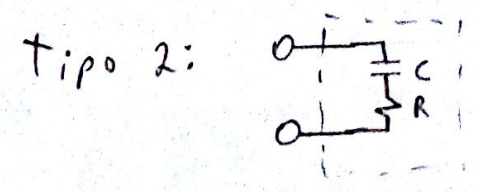 Tipo 2:
C
R